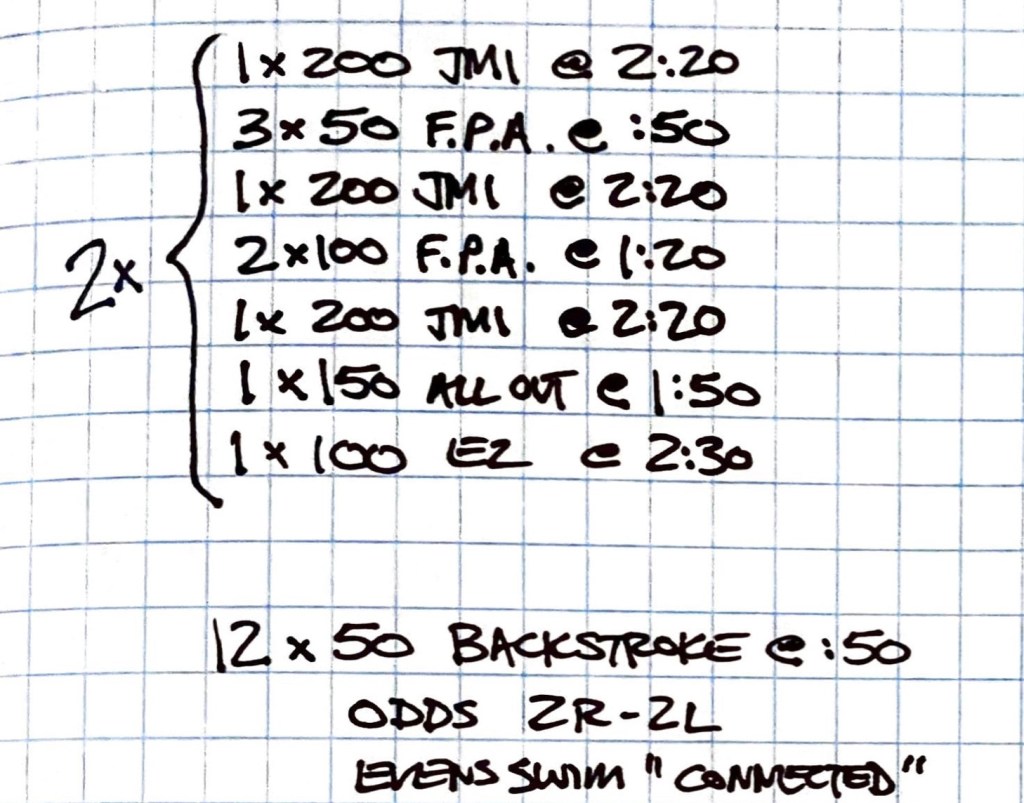 2x
1 x 200 JMI @ 2:20
3 x 50 F.P.A. @ :50
1 x 200 JMI @ 2:20
2 x 100 F.P.A. @ 1:20
1 x 200 JMI @ 2:20
1 x 150 ALL OUT @ 1:50
1 x 100 EZ @ 2:30
12 x 50 BACKSTROKE @ :50
ODDS 2R-2L
EVENS SWIM "CONNECTED"